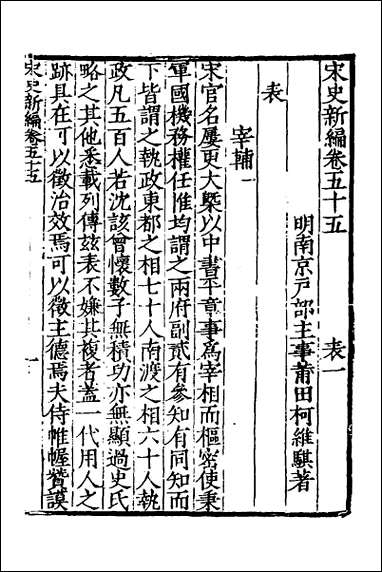 宋史新編卷五十五　表一
明南京戶部主事莆田柯維騏著
表
宰輔一
宋官名屢更大槩以中書平章事爲宰相而樞密使秉
軍國機務權任惟均謂之兩府副貳有參知有同知而
下皆謂之執政東都之相七十人南渡之相六十人執
政凡五百人若沈該曾懷數子無積功亦無顯過史氏
略之其他悉載列傳玆表不嫌其複者盖一代用人之
跡具在可以徵治效焉可以徵主德焉夫侍帷幄贊謨
宋史新編卷五十五
一